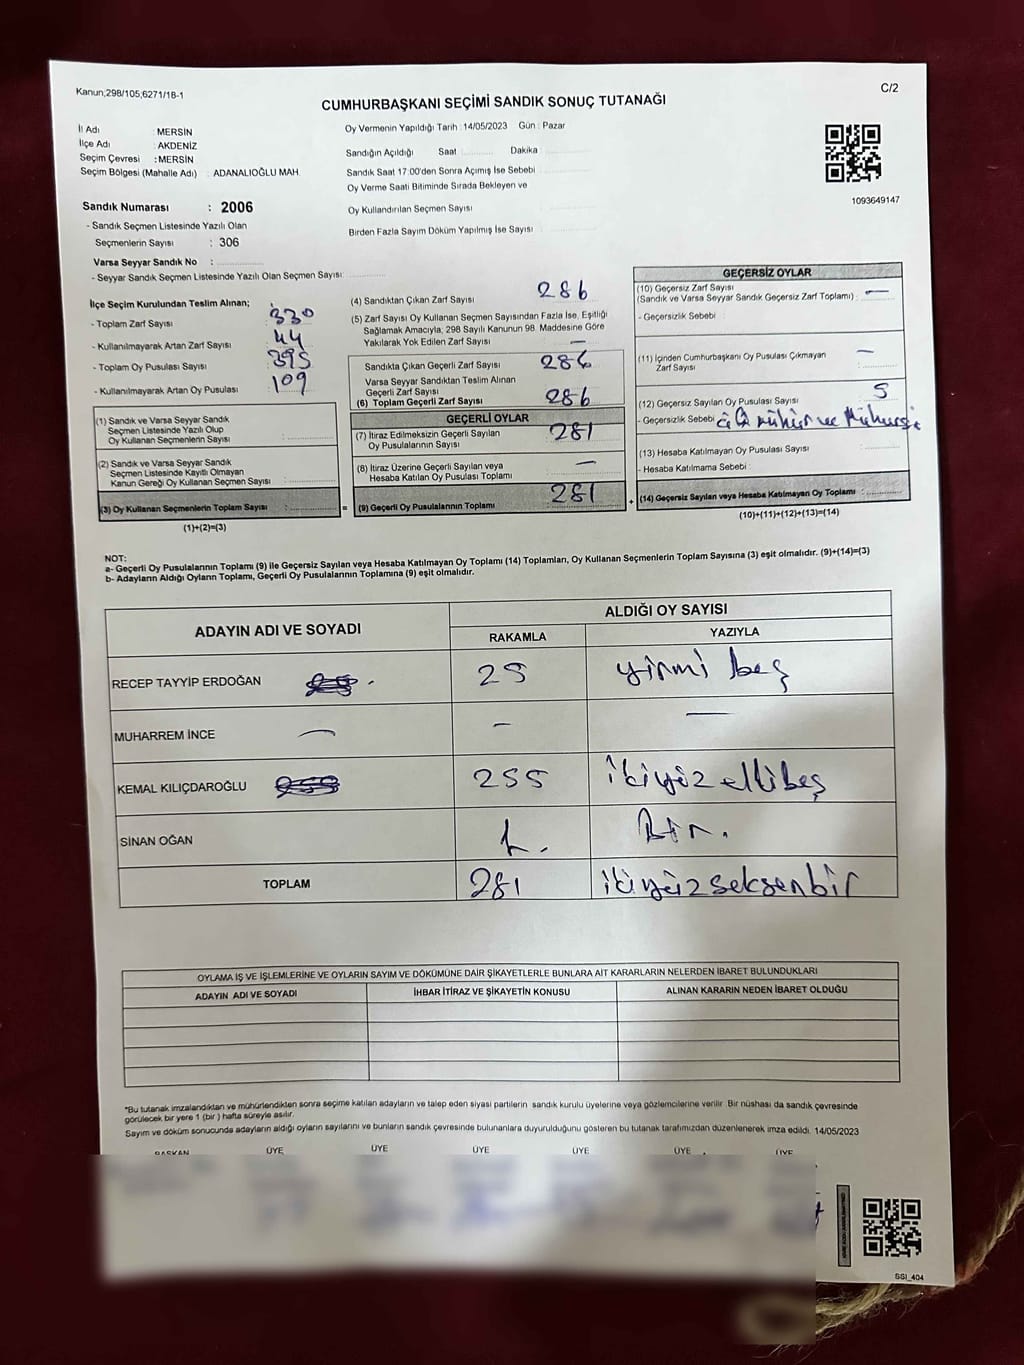 Kanun;298/105;6271/18-1
C/2
CUMHURBAŞKANI SEÇİMİ SANDIK SONUÇ TUTANAĞI
İl Adı : MERSİN
İlçe Adı : AKDENİZ
Seçim Çevresi : MERSİN
Seçim Bölgesi (Mahalle Adı) : ADANALIOĞLU MAH.
Sandık Numarası : 2006
- Sandık Seçmen Listesinde Yazılı Olan
Seçmenlerin Sayısı : 306
Varsa Seyyar Sandık No :
- Seyyar Sandık Seçmen Listesinde Yazılı Olan Seçmen Sayısı:
Oy Vermenin Yapıldığı Tarih :14/05/2023 Gün : Pazar
Sandığın Açıldığı Saat Dakika
Sandık Saat 17:00'den Sonra Açımış İse Sebebi
Oy Verme Saati Bitiminde Sırada Bekleyen ve
Oy Kullandırılan Seçmen Sayısı
Birden Fazla Sayım Döküm Yapılmış İse Sayısı
1093649147
İlçe Seçim Kurulundan Teslim Alınan;
- Toplam Zarf Sayısı : 330
- Kullanılmayarak Artan Zarf Sayısı : 44
- Toplam Oy Pusulası Sayısı : 395
- Kullanılmayarak Artan Oy Pusulası : 109
(1) Sandık ve Varsa Seyyar Sandık
Seçmen Listesinde Yazılı Olup
Oy Kullanan Seçmenlerin Sayısı :
(2) Sandık ve Varsa Seyyar Sandık
Seçmen Listesinde Kayıtlı Olmayan
Kanun Gereği Oy Kullanan Seçmen Sayısı :
(3) Oy Kullanan Seçmenlerin Toplam Sayısı :
(1)+(2)=(3)
(4) Sandıktan Çıkan Zarf Sayısı 286
(5) Zarf Sayısı Oy Kullanan Seçmen Sayısından Fazla İse, Eşitliği
Sağlamak Amacıyla; 298 Sayılı Kanunun 98. Maddesine Göre
Yakılarak Yok Edilen Zarf Sayısı —
Sandıkta Çıkan Geçerli Zarf Sayısı 286
Varsa Seyyar Sandıktan Teslim Alınan
Geçerli Zarf Sayısı
(6) Toplam Geçerli Zarf Sayısı 286
GEÇERLİ OYLAR
(7) İtiraz Edilmeksizin Geçerli Sayılan 281
Oy Pusulasının Sayısı
(8) İtiraz Üzerine Geçerli Sayılan veya —
Hesaba Katılan Oy Pusulası Toplamı
= (9) Geçerli Oy Pusulalarının Toplamı 281
GEÇERSİZ OYLAR
(10) Geçersiz Zarf Sayısı
(Sandık ve Varsa Seyyar Sandık Geçersiz Zarf Toplamı) : —
- Geçersizlik Sebebi :
(11) İçinden Cumhurbaşkanı Oy Pusulası Çıkmayan —
Zarf Sayısı
(12) Geçersiz Sayılan Oy Pusulası Sayısı 5
- Geçersizlik Sebebi mühür ve
(13) Hesaba Katılmayan Oy Pusulası Sayısı
- Hesaba Katılmama Sebebi :
+ (14) Geçersiz Sayılan veya Hesaba Katılmayan Oy Toplamı :
(10)+(11)+(12)+(13)=(14)
NOT:
a- Geçerli Oy Pusulalarının Toplamı (9) ile Geçersiz Sayılan veya Hesaba Katılmayan Oy Toplamı (14) Toplamları, Oy Kullanan Seçmenlerin Toplam Sayısına (3) eşit olmalıdır. (9)+(14)=(3)
b- Adayların Aldığı Oyların Toplamı, Geçerli Oy Pusulalarının Toplamına (9) eşit olmalıdır.
ADAYIN ADI VE SOYADI
ALDIĞI OY SAYISI
RAKAMLA YAZIYLA
RECEP TAYYİP ERDOĞAN 25 yirmi beş
MUHARREM İNCE — — —
KEMAL KILIÇDAROĞLU 255 ikiyüz ellibeş
SİNAN OĞAN 1. Bir.
TOPLAM 281 ikiyüzseksenbir
OYLAMA İŞ VE İŞLEMLERİNE VE OYLARIN SAYIM VE DÖKÜMÜNE DAİR ŞİKAYETLERLE BUNLARA AİT KARARLARIN NELERDEN İBARET BULUNDUKLARI
ADAYIN ADI VE SOYADI İHBAR İTİRAZ VE ŞİKAYETİN KONUSU ALINAN KARARIN NEDEN İBARET OLDUĞU
*Bu tutanak imzalandıktan ve mühürlendikten sonra seçime katılan adayların ve talep eden siyasi partilerin sandık kurulu üyelerine veya gözlemcilerine verilir. Bir nüshası da sandık çevresinde
görülecek bir yere 1 (bir) hafta süreyle asılır.
Sayım ve döküm sonucunda adayların aldığı oyların sayılarını ve bunların sandık çevresinde bulunanlara duyurulduğunu gösteren bu tutanak tarafımızdan düzenlenerek imza edildi. 14/05/2023
BAŞKAN ÜYE ÜYE ÜYE ÜYE ÜYE ÜYE
SSI_404